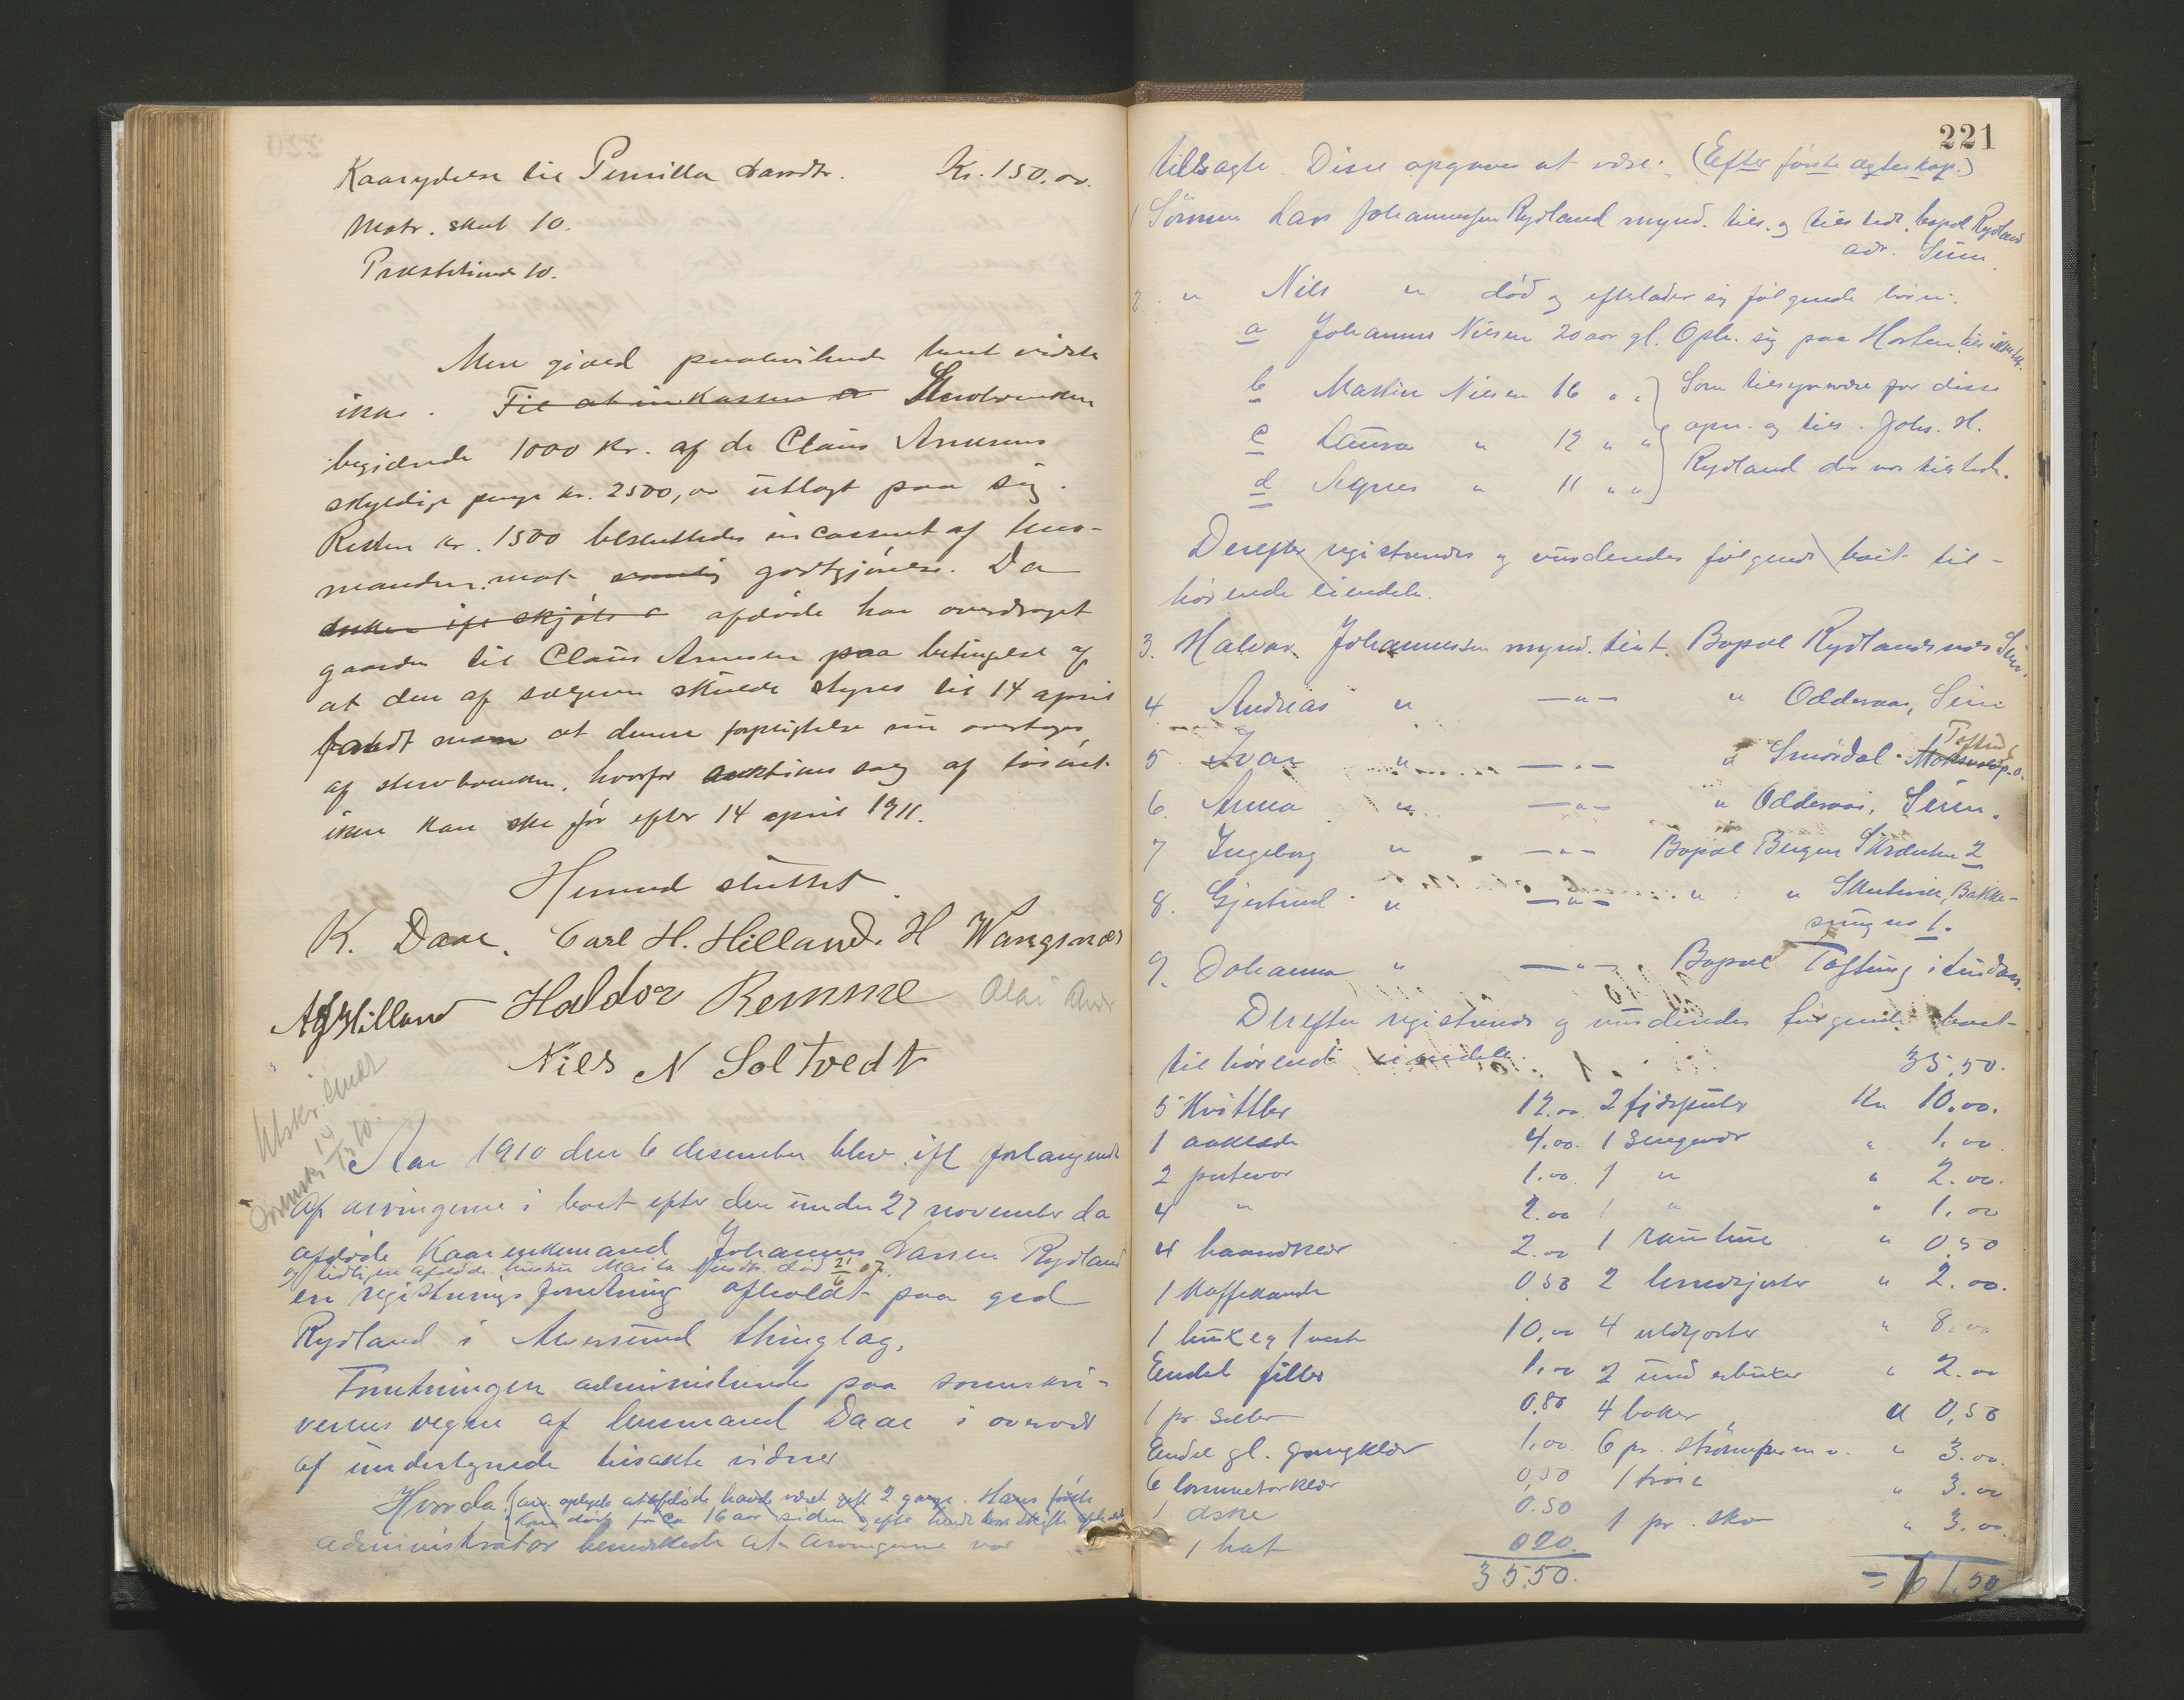 Kaarydelse til Pernilla Larsdtr. Kr. 150.00.
Matr. skat 10.
Præstetiende 10.
Mere gjæld paahvilende boet vidste
ikke. Til at inkassere Stervboenken
begjærende 1000 Kr. af de Claus Arnesens
skyldige penge kr. 2500,00 utlagt paa sig.
Resten kr. 1500 besluttedes incasseret af lens-
manden mot vanlig godtgjørelse. Da
enken ifl skjøte afdøde har overdraget
gaarden til Claus Arnesen paa betingelse af
at den af sælgeren skulde styres til 14 april
fandt man at denne forpligtelse nu overtages
af stervboenken, hvorfor auktions salg af løsøret
ikke kan ske før efter 14 april 1911.
Hermed sluttet.
K. Daae. Carl H. Hilland. H Wangsnæs
AJHilland Haldor Remme Olai Andr
Nils N Soltvedt
Utskr. sendt
Sorenskr. 14/12 10.
Aar 1910 den 6 desember blev ifl forlangende
af arvingerne i boet efter den under 27 november da
afdøde Kaarenkemand Johannes Larsen Rydland
og tidligere afdøde hustru Marta Nilsdtr. død 21/6 07.
en registreringsforretning afholdt paa grd
Rydland i Alversund thinglag.
Forretningen administreredes paa sorenskri-
verens vegne af lensmand Daae i overvær
af undertegnede tilsakte vidner
Hvorda: arv. oplyste at afdøde havde været gift 2 gange. Hans første
kone døde for ca 16 aar siden og efter hende skifte afholdt
administrator bemerkede at arvingerne var
221
tilsagte. Disse opgaves at være: (Efter første ægteskap.)
1 Sønnen Lars Johannessen Rydland mynd. tils. og tilstede. bopæl Rydland
adr. Seim.
2. " Nils " død og efterlader sig følgende børn:
a Johannes Nilsen 20 aar gl. Oph. sig paa Horten tils ikke
b Martin Nilsen 16 " " Som tilsynværge for disse
c Laura " 12 " " opn. og tils. Johs. H.
d Agnes " 11 " " Rydland der var tilstede.
Derefter registreredes og vurderedes følgende boet til-
hørende eiendele.
3. Halvar Johannessen mynd. tilst. Bopæl Rydlandsnes Seim.
4 Andreas " —"— " Odderaas, Seim
5 Ivar " —"— " Smørdal Toftund p.o.
6. Anna " —"— " Odderaas, Seim.
7 Ingeborg " —"— Bopæl Bergen 2
8. Gjertrud " —"— " " Skuteviken, Bakke-
smug no 1.
9. Johanna " —"— Bopæl Toftung i Lindaas.
Derefter registreredes og vurderedes følgende boet
tilhørende eiendele. 35.50.
5 Kvittler 12.00 2 fjærputer Kr 10.00.
1 aaklæde 4.00. 1 sengevær " 1.00
2 putevor 1.00. 1 " " 2.00.
4 " 2.00 1 " " 1.00
4 haandklær 2.00 1 " 0.50
1 Kaffekande 0.50 2 lerretsjorter " 2.00.
1 bukse og 1 vest 10.00 4 uldsjorter " 8.00
Endel filler 1.00 2 underbukser " 2.00
1 pr. seler 0.80 4 bøker " 0.50
Endel gl. gangklær 1.00. 6 pr. strømper m.v. " 3.00.
6 lommetørklær 0.50 1 trøie " 3.00
1 æske 0.50 1 pr. sko " 3.00.
1 hat 020.
35.50. = 71.50